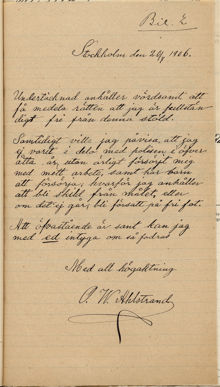 Bil. E
Stockholm den 24/9 1906.
Undertecknad anhåller vördsamt att
få meddela rätten att jag är fullstän-
digt fri från denna stöld.
Samtidigt vill jag påvisa, att jag
ej varit i delo med polisen i öfver
åtta år, utan ärligt försörjt mig
med mitt arbete, samt har barn
att försörja, hvarför jag anhåller
att bli skild från målet eller
om det ej går, bli försatt på fri fot.
Att ofvanstående är sant kan jag
med ed intyga om så fodras.
Med all högaktning
A. W. Ahlstrand